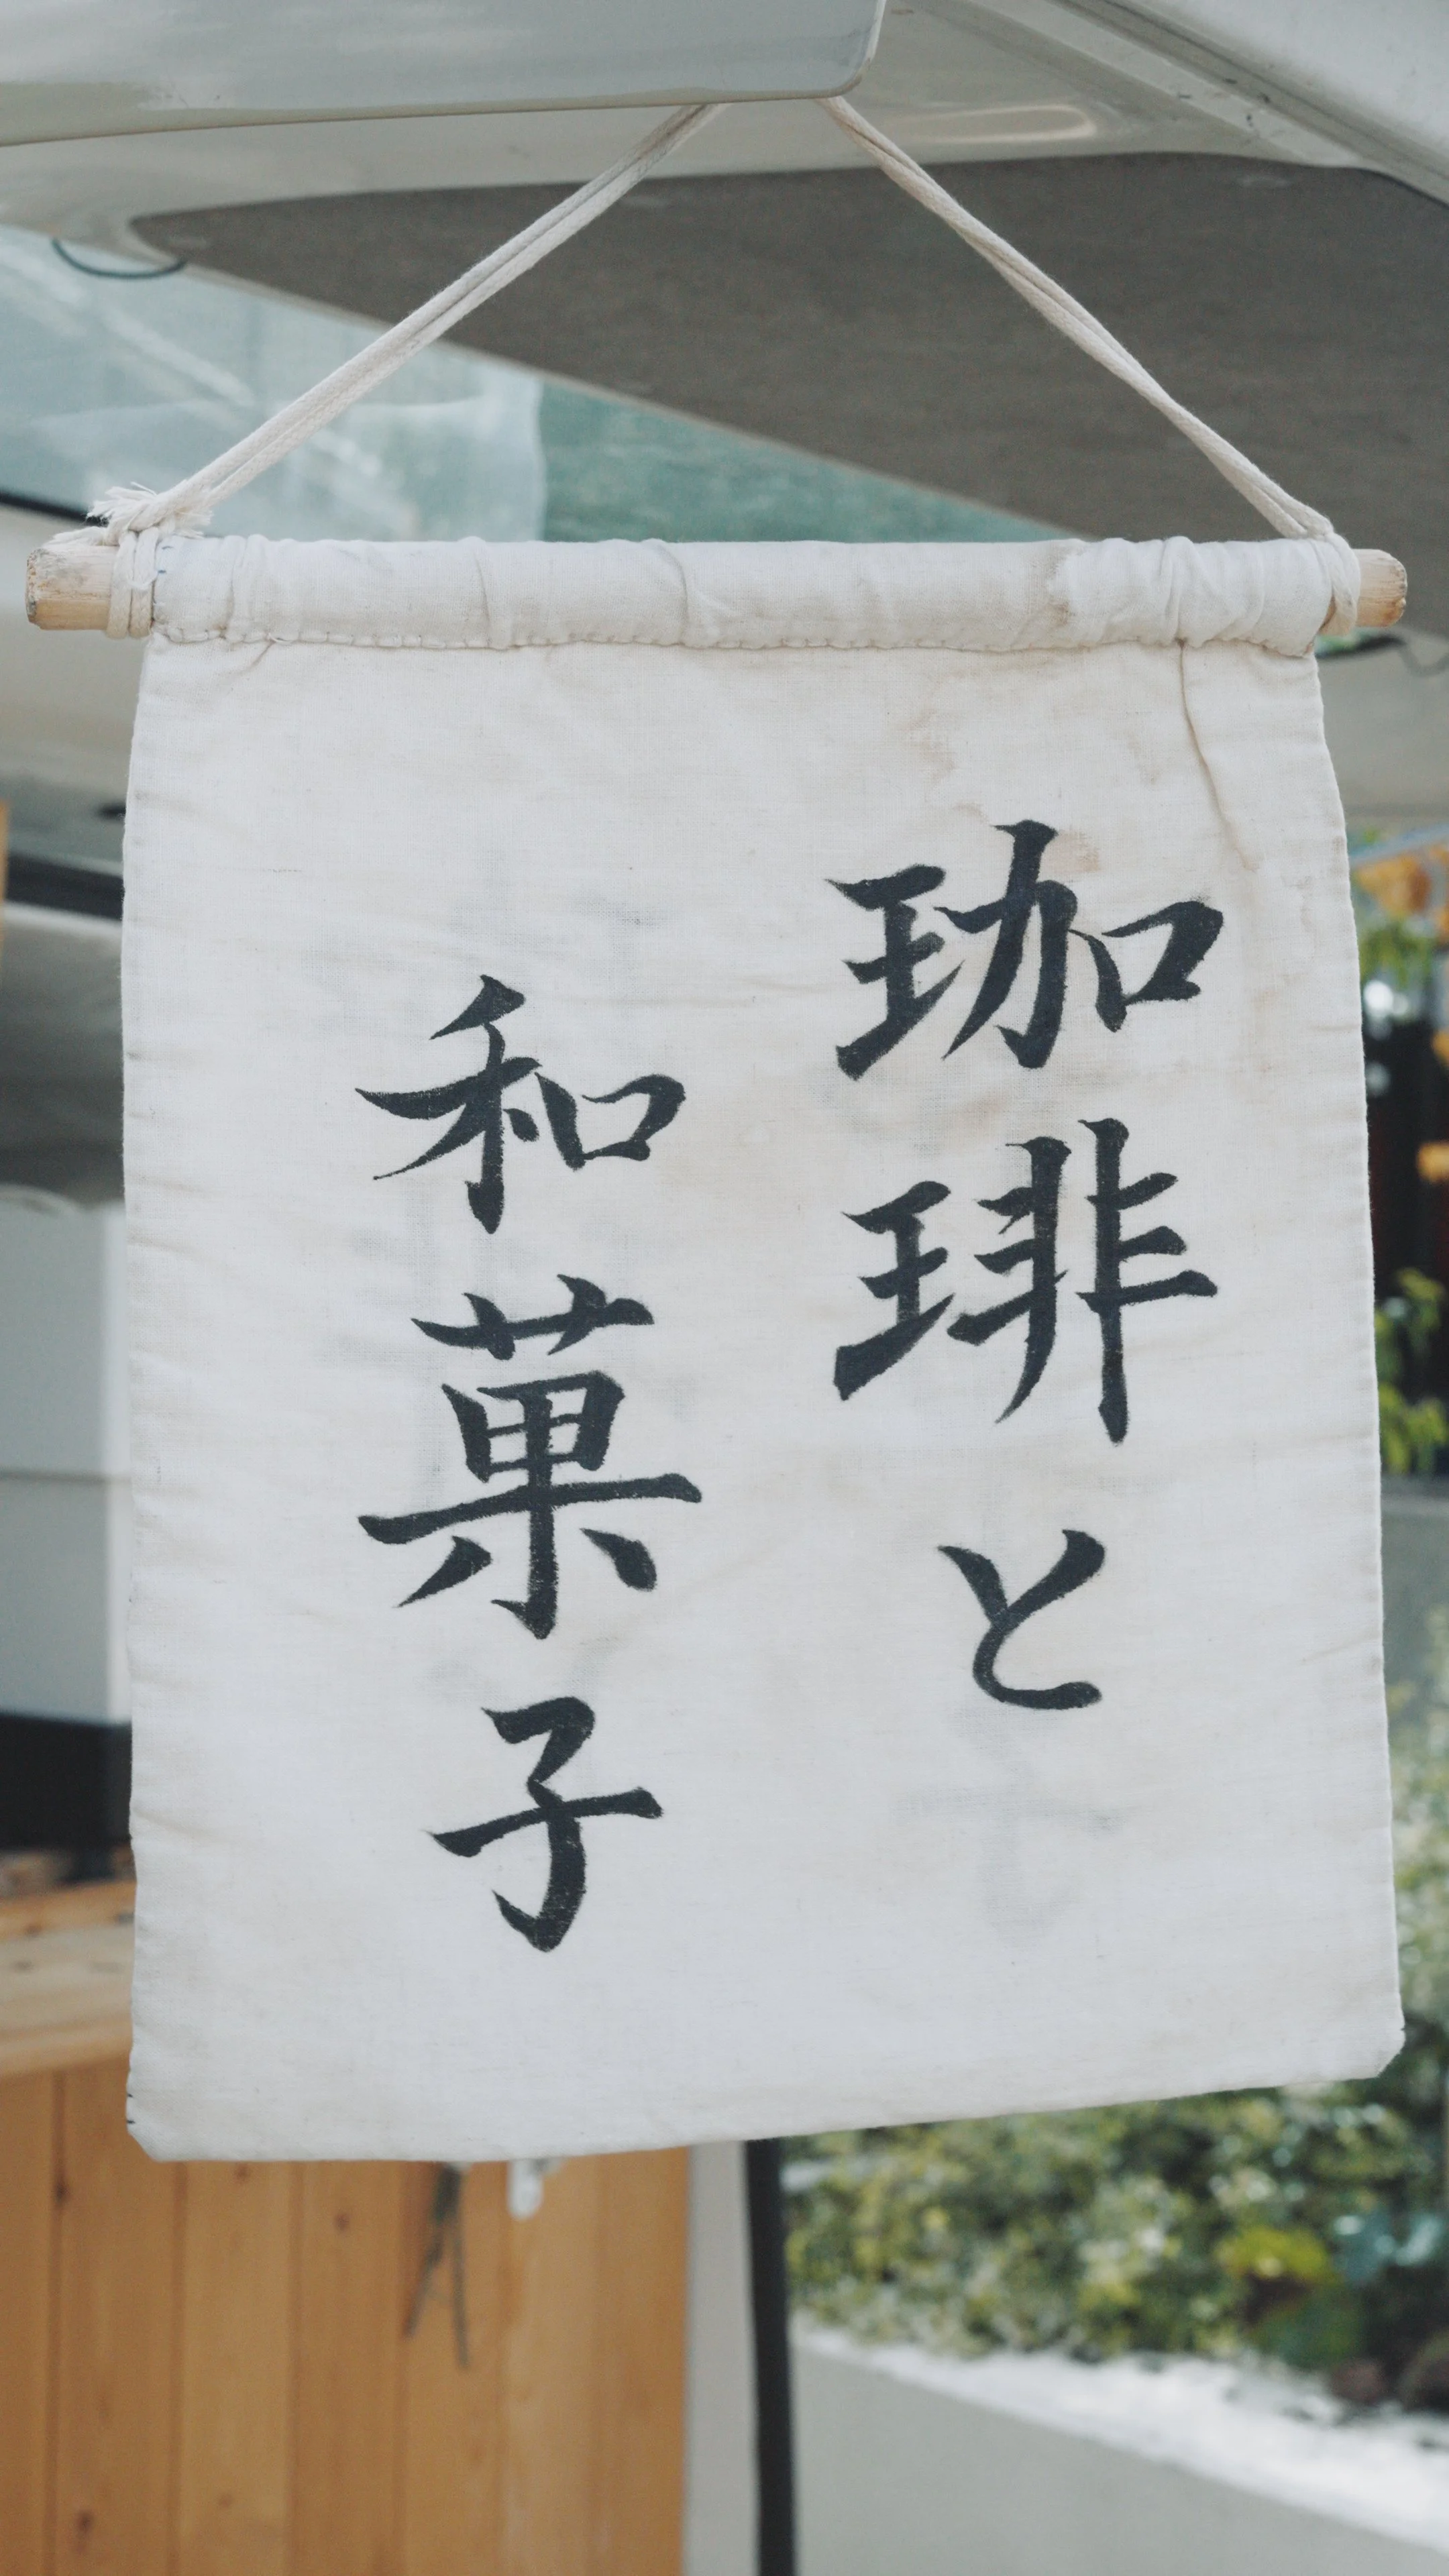 珈琲と
和菓子